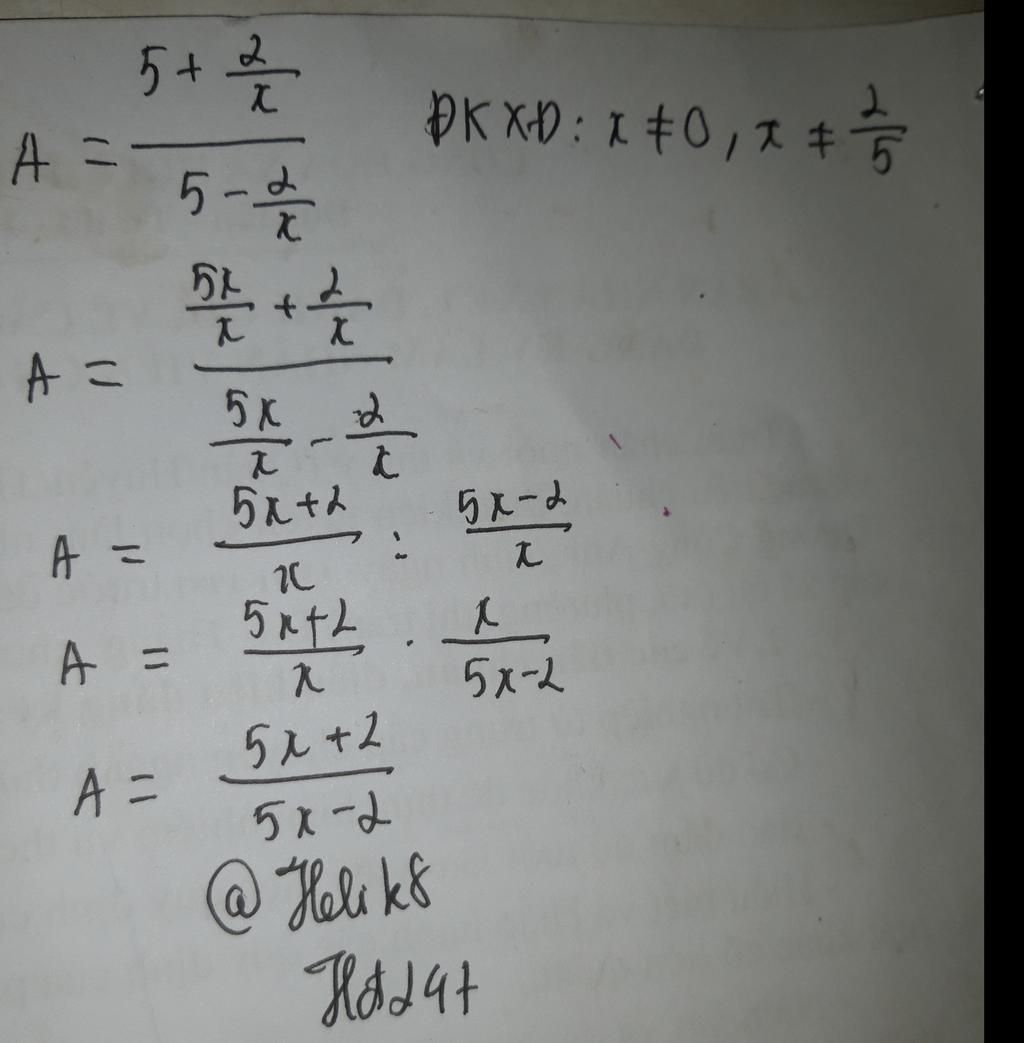 A = \frac{5 + \frac{2}{x}}{5 - \frac{2}{x}} ĐKXĐ: x ≠ 0, x ≠ \frac{2}{5}
A = \frac{\frac{5x}{x} + \frac{2}{x}}{\frac{5x}{x} - \frac{2}{x}}
A = \frac{5x+2}{x} : \frac{5x-2}{x}
A = \frac{5x+2}{x} . \frac{x}{5x-2}
A = \frac{5x+2}{5x-2}
@